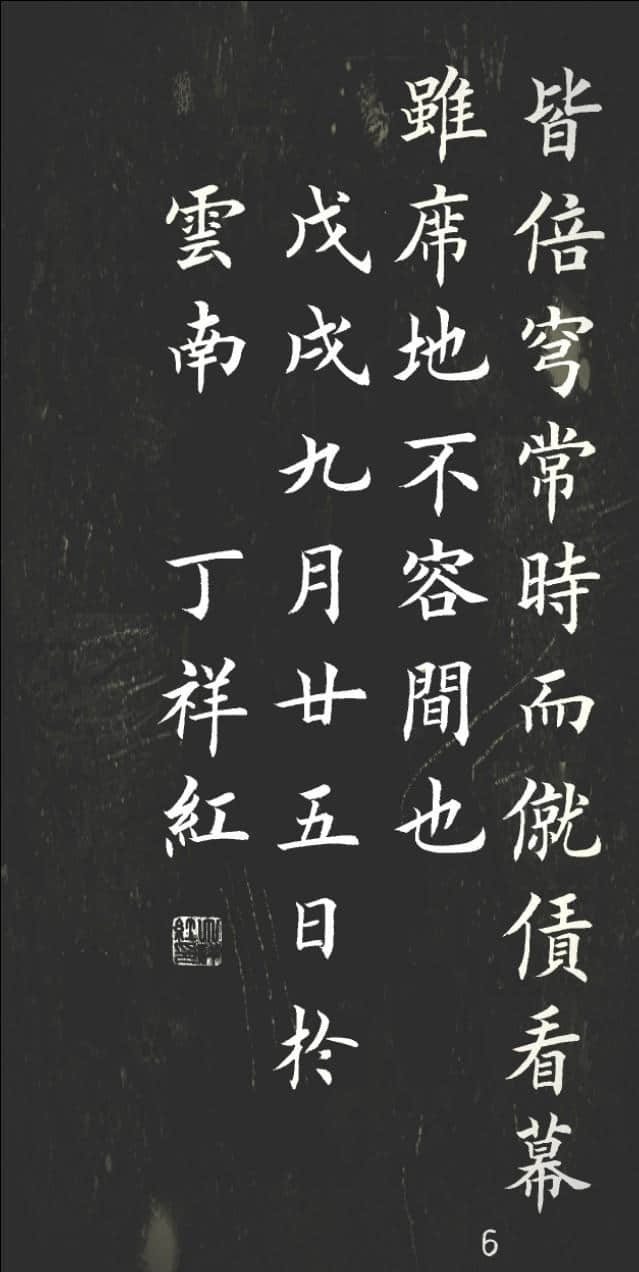 皆倍穹常時而僦賃看幕
雖席地不容間也
戊戌九月廿五日於
雲南 丁祥紅
6